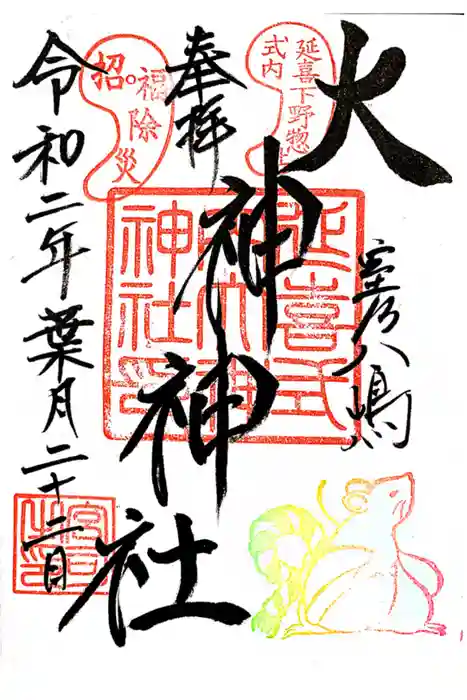 大神神社
室乃八嶋
奉拝
令和二年葉月二十二日
延喜
式内
下野惣
招福
除災
延喜式
内大神
神社印
宮司
之印